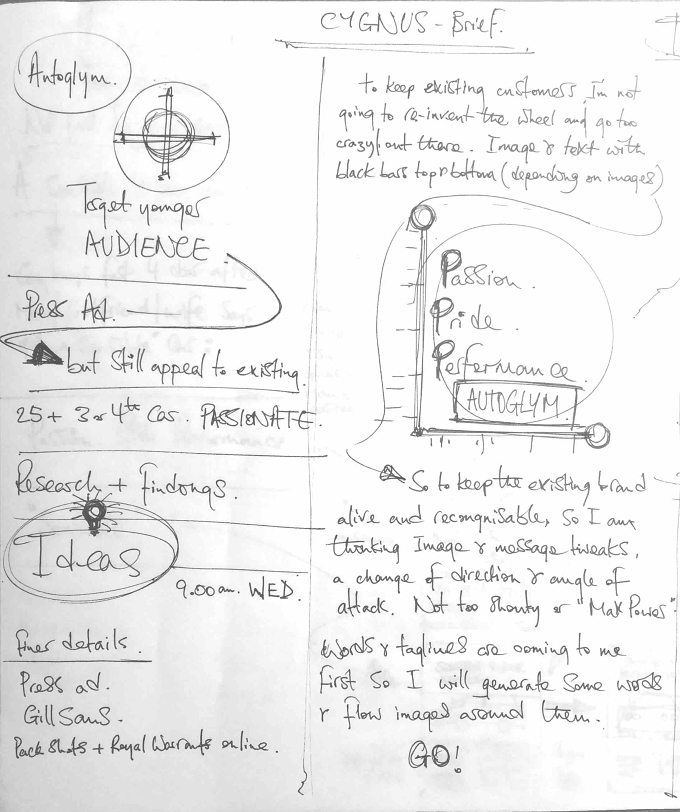 CYGNUS - Brief.
Autoglym.
Target younger
AUDIENCE
Press Ad.
but still appeal to existing.
25+ 3 or 4th Car. PASSIONATE.
Research + Findongs.
Ideas
9.00am. WED.
finer details.
Press ad.
Gill Sans.
Pack shots + Royal Warrants online.
to keep existing customers, I'm not
going to re-invent the wheel and go too
crazy out there. Image & text with
black bars top & bottom (depending on images)
Passion.
Pride.
Performance.
AUTOGLYM.
So to keep the existing brand
alive and recongnisable, so I am
thinking Image & message tweaks,
a change of direction & angle of
attack. Not too shouty or "Max Power".
Words & taglines are coming to me
first so I will generate some words
& flow images around them.
GO!